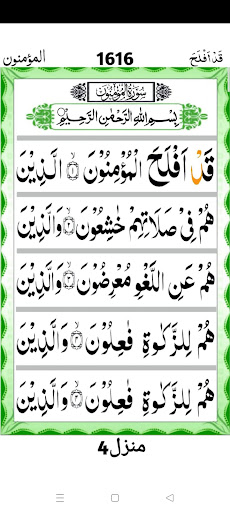 المؤمنون 1616 قَدْ اَفْلَحَ
سُوْرَةُ الْمُؤْمِنُوْنَ
بِسْمِ اللّٰهِ الرَّحْمٰنِ الرَّحِيْمِ
قَدْ اَفْلَحَ الْمُؤْمِنُوْنَ ۝۱ الَّذِيْنَ
هُمْ فِيْ صَلَاتِهِمْ خٰشِعُوْنَ ۝۲ وَالَّذِيْنَ
هُمْ عَنِ اللَّغْوِ مُعْرِضُوْنَ ۝۳ وَالَّذِيْنَ
هُمْ لِلزَّكٰوةِ فٰعِلُوْنَ ۝۴ وَالَّذِيْنَ
هُمْ لِلزَّكٰوةِ فٰعِلُوْنَ ۝۴ وَالَّذِيْنَ
منزل4